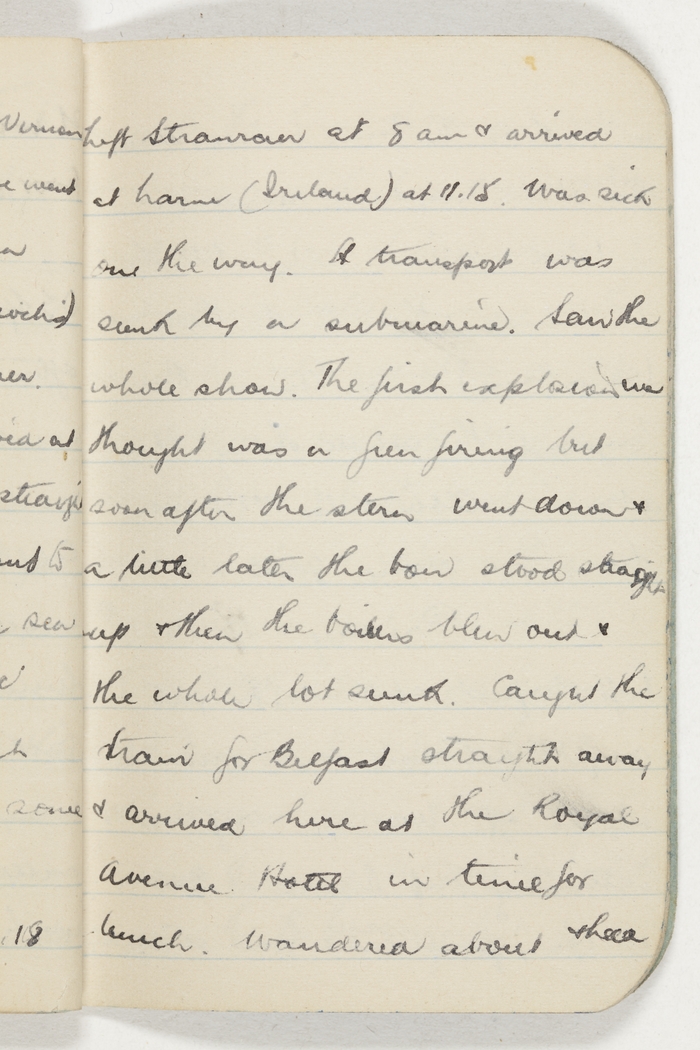 Left Stranraer at 8 am & arrived
at Larne (Ireland) at 11.15. Was sick
one the way. A transport was
sunk by a submarine. Saw the
whole show. The first explosion we
thought was a gun firing but
soon after the stern went down &
a little later the bow stood straight
up & then the boilers blew out &
the whole lot sunk. Caught the
train for Belfast straight away
& arrived here at the Royal
Avenue Hotel in time for
lunch. Wandered about & had
Vernon
e went
a
er.
ed at
to
sea
some
.18